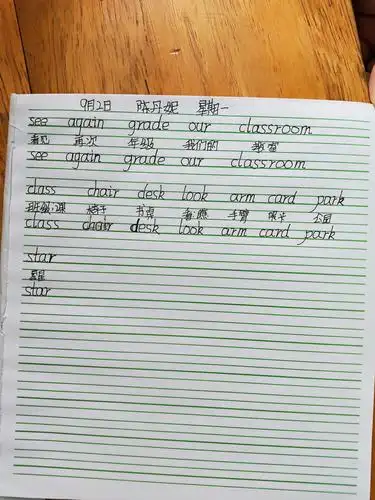 9月2日 陈丹妮 星期一
see again grade our classroom
看见 再次 年级 我们的 教室
see again grade our classroom
class chair desk look arm card park
班级;课 椅子 书桌 看;瞧 手臂 公园
class chair desk look arm card park
star
星星
star